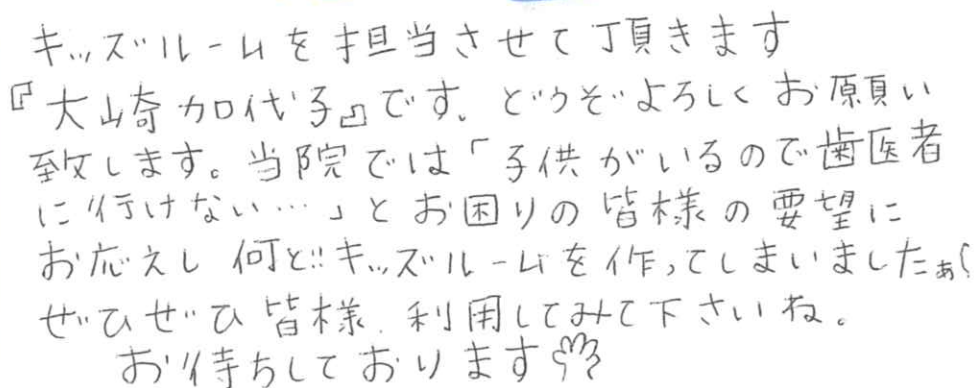 キッズルームを担当させて頂きます
『大崎加代子』です。どうぞよろしくお願い
致します。当院では「子供がいるので歯医者
に行けない…」とお困りの皆様の要望に
お応えし何と!!キッズルームを作ってしまいましたぁ!
ぜひぜひ皆様、利用してみて下さいね。
お待ちしております